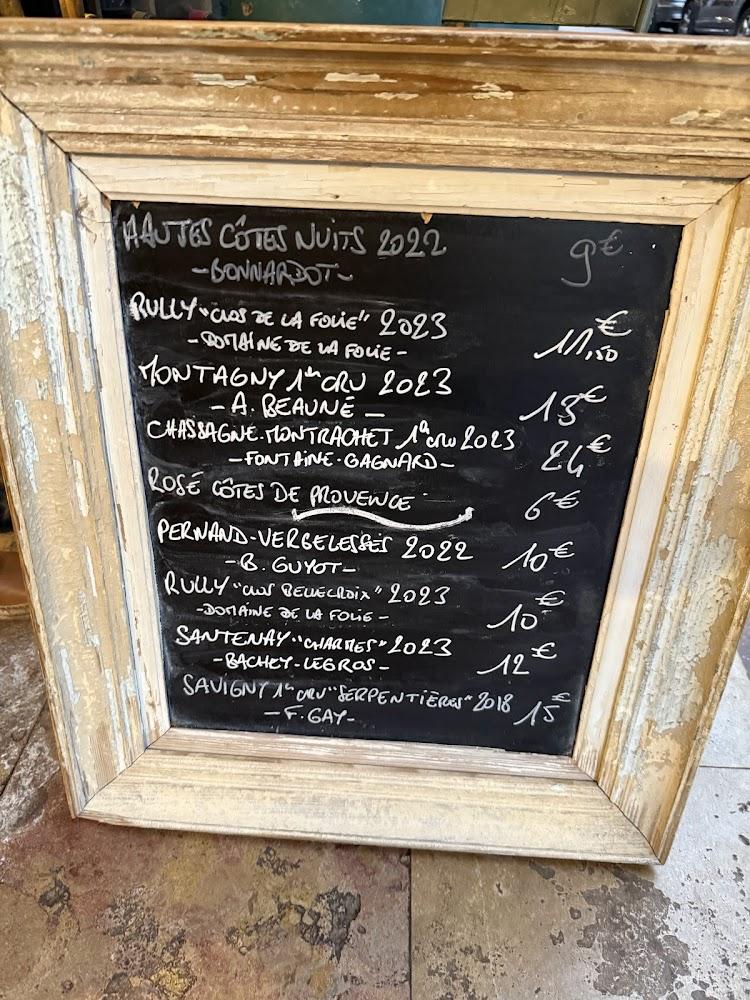 HAUTES CÔTES NUITS 2022 9€
-BONNARDOT-
RULLY "CLOS DE LA FOLIE" 2023 11,50€
-DOMAINE DE LA FOLIE-
MONTAGNY 1er CRU 2023 13€
-A. BEAUNE-
CHASSAGNE-MONTRACHET 1er CRU 2023 24€
-FONTAINE-GAGNARD-
ROSÉ CÔTES DE PROVENCE 6€
PERNAND-VERGELESSES 2022 10€
-B. GUYOT-
RULLY "CLOS BELLECROIX" 2023 10€
-DOMAINE DE LA FOLIE-
SANTENAY "CHARMES" 2023 12€
-BACHEY-LEGROS-
SAVIGNY 1er CRU "SERPENTIÈRES" 2018 15€
-F. GAY-